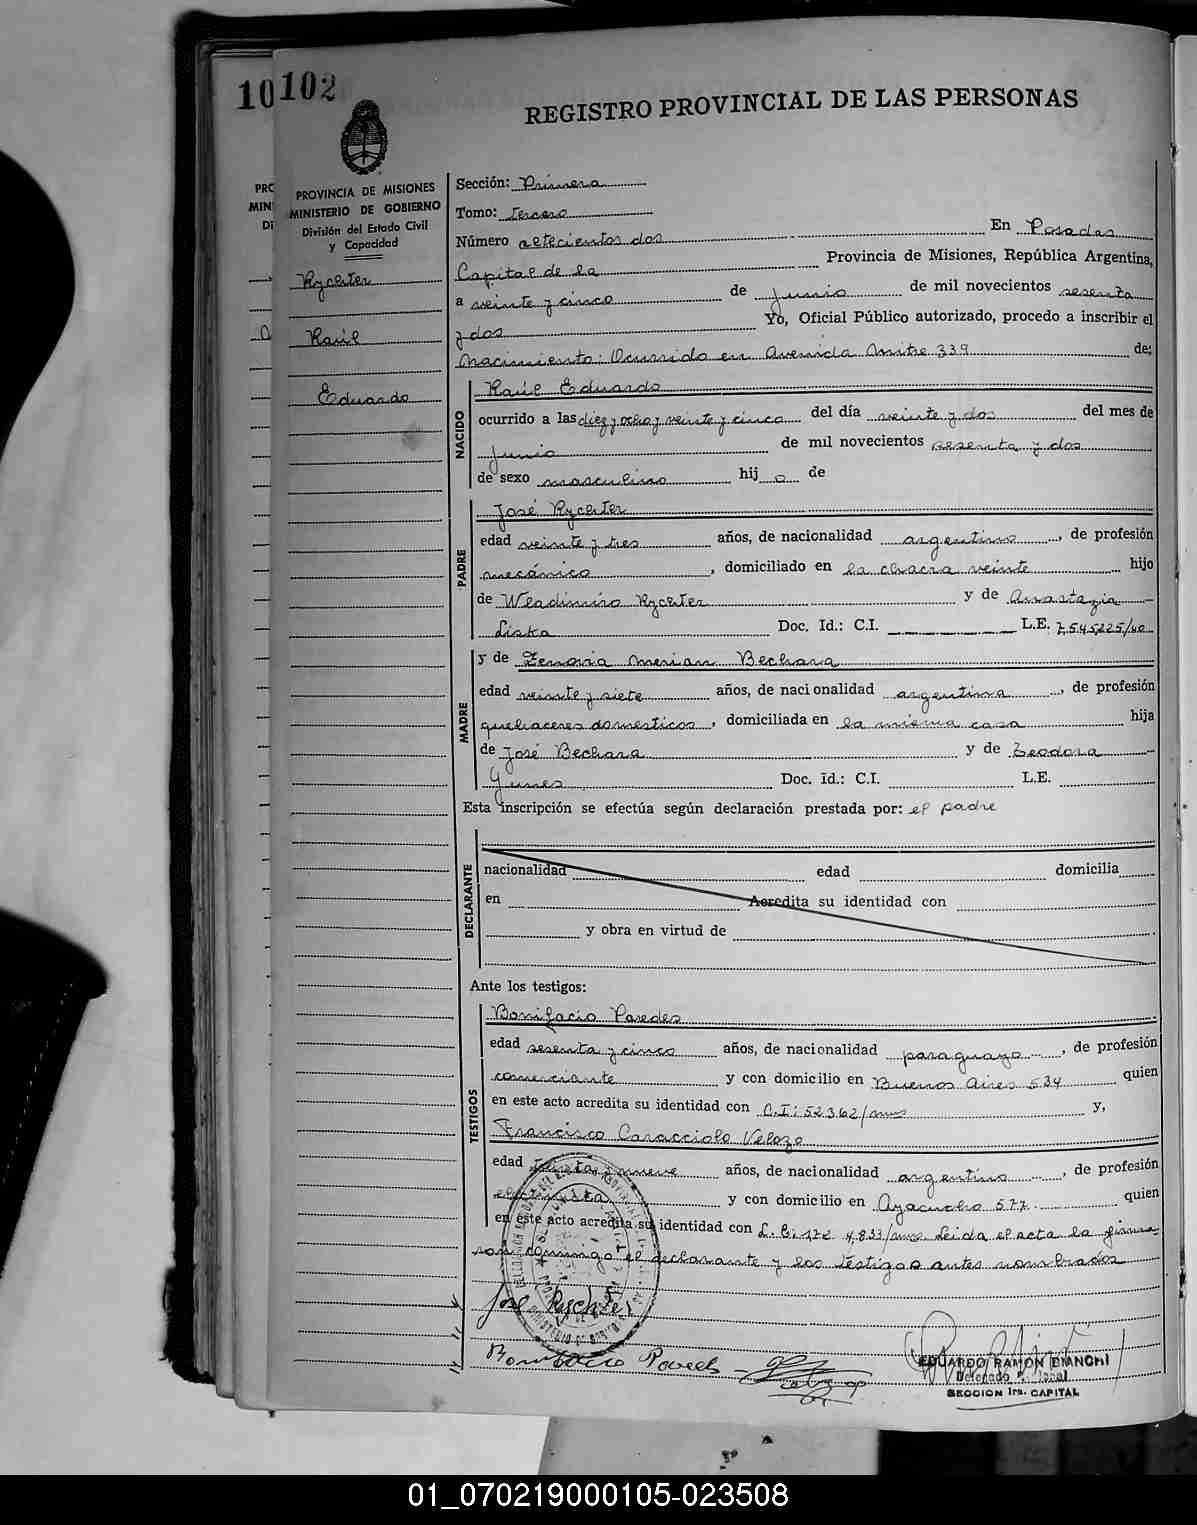 10
102
REGISTRO PROVINCIAL DE LAS PERSONAS
PROVINCIA DE MISIONES
MINISTERIO DE GOBIERNO
División del Estado Civil
y Capacidad
Rychter
Raúl
Eduardo
Sección: Primera
Tomo: tercero
Número setecientos dos En Posadas
Capital de la Provincia de Misiones, República Argentina,
a veinte y cinco de junio de mil novecientos sesenta
y dos Yo, Oficial Público autorizado, procedo a inscribir el
Nacimiento: Ocurrido en Avenida Mitre 339 de;
NACIDO
Raúl Eduardo
ocurrido a las diez y ocho y veinte y cinco del día veinte y dos del mes de
junio de mil novecientos sesenta y dos
de sexo masculino hijo de
PADRE
José Rychter
edad veinte y tres años, de nacionalidad argentino, de profesión
mecánico, domiciliado en la chacra veinte hijo
de Wladimiro Rychter y de Anastazia
Liska Doc. Id.: C.I. L.E. 7.545.225/40
MADRE
y de Zenovia Merian Bechara
edad veinte y siete años, de nacionalidad argentina, de profesión
quehaceres domesticos, domiciliada en la misma casa hija
de José Bechara y de Teodora
Doc. Id.: C.I. L.E.
Esta inscripción se efectúa según declaración prestada por: el padre
DECLARANTE
nacionalidad edad domicilia
en Acredita su identidad con
y obra en virtud de
Ante los testigos:
TESTIGOS
Bonifacio Paredes
edad sesenta y cinco años, de nacionalidad paraguayo, de profesión
comerciante y con domicilio en Buenos Aires 534 quien
en este acto acredita su identidad con C.I: 52362/mns y,
Francisco Caracciolo Velozo
edad treinta y nueve años, de nacionalidad argentino, de profesión
electricista y con domicilio en Ayacucho 577 quien
en este acto acredita su identidad con Leida el acta la firma
ron conmigo el declarante y los testigos antes nombrados
José Rychter
Bonifacio Paredes
EDUARDO RAMON BIANCHI
Delegado
SECCION 1ra. CAPITAL
01_070219000105-023508